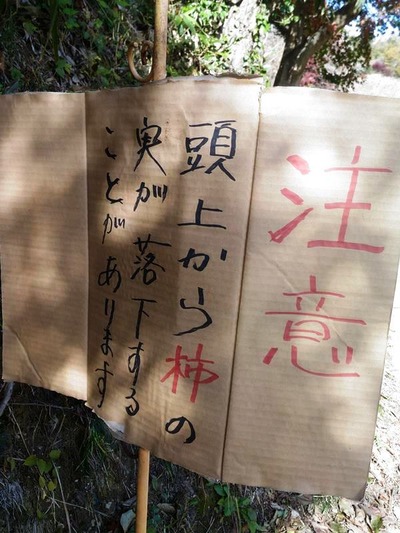 注意
頭上から柿の
実が落下する
ことがあります